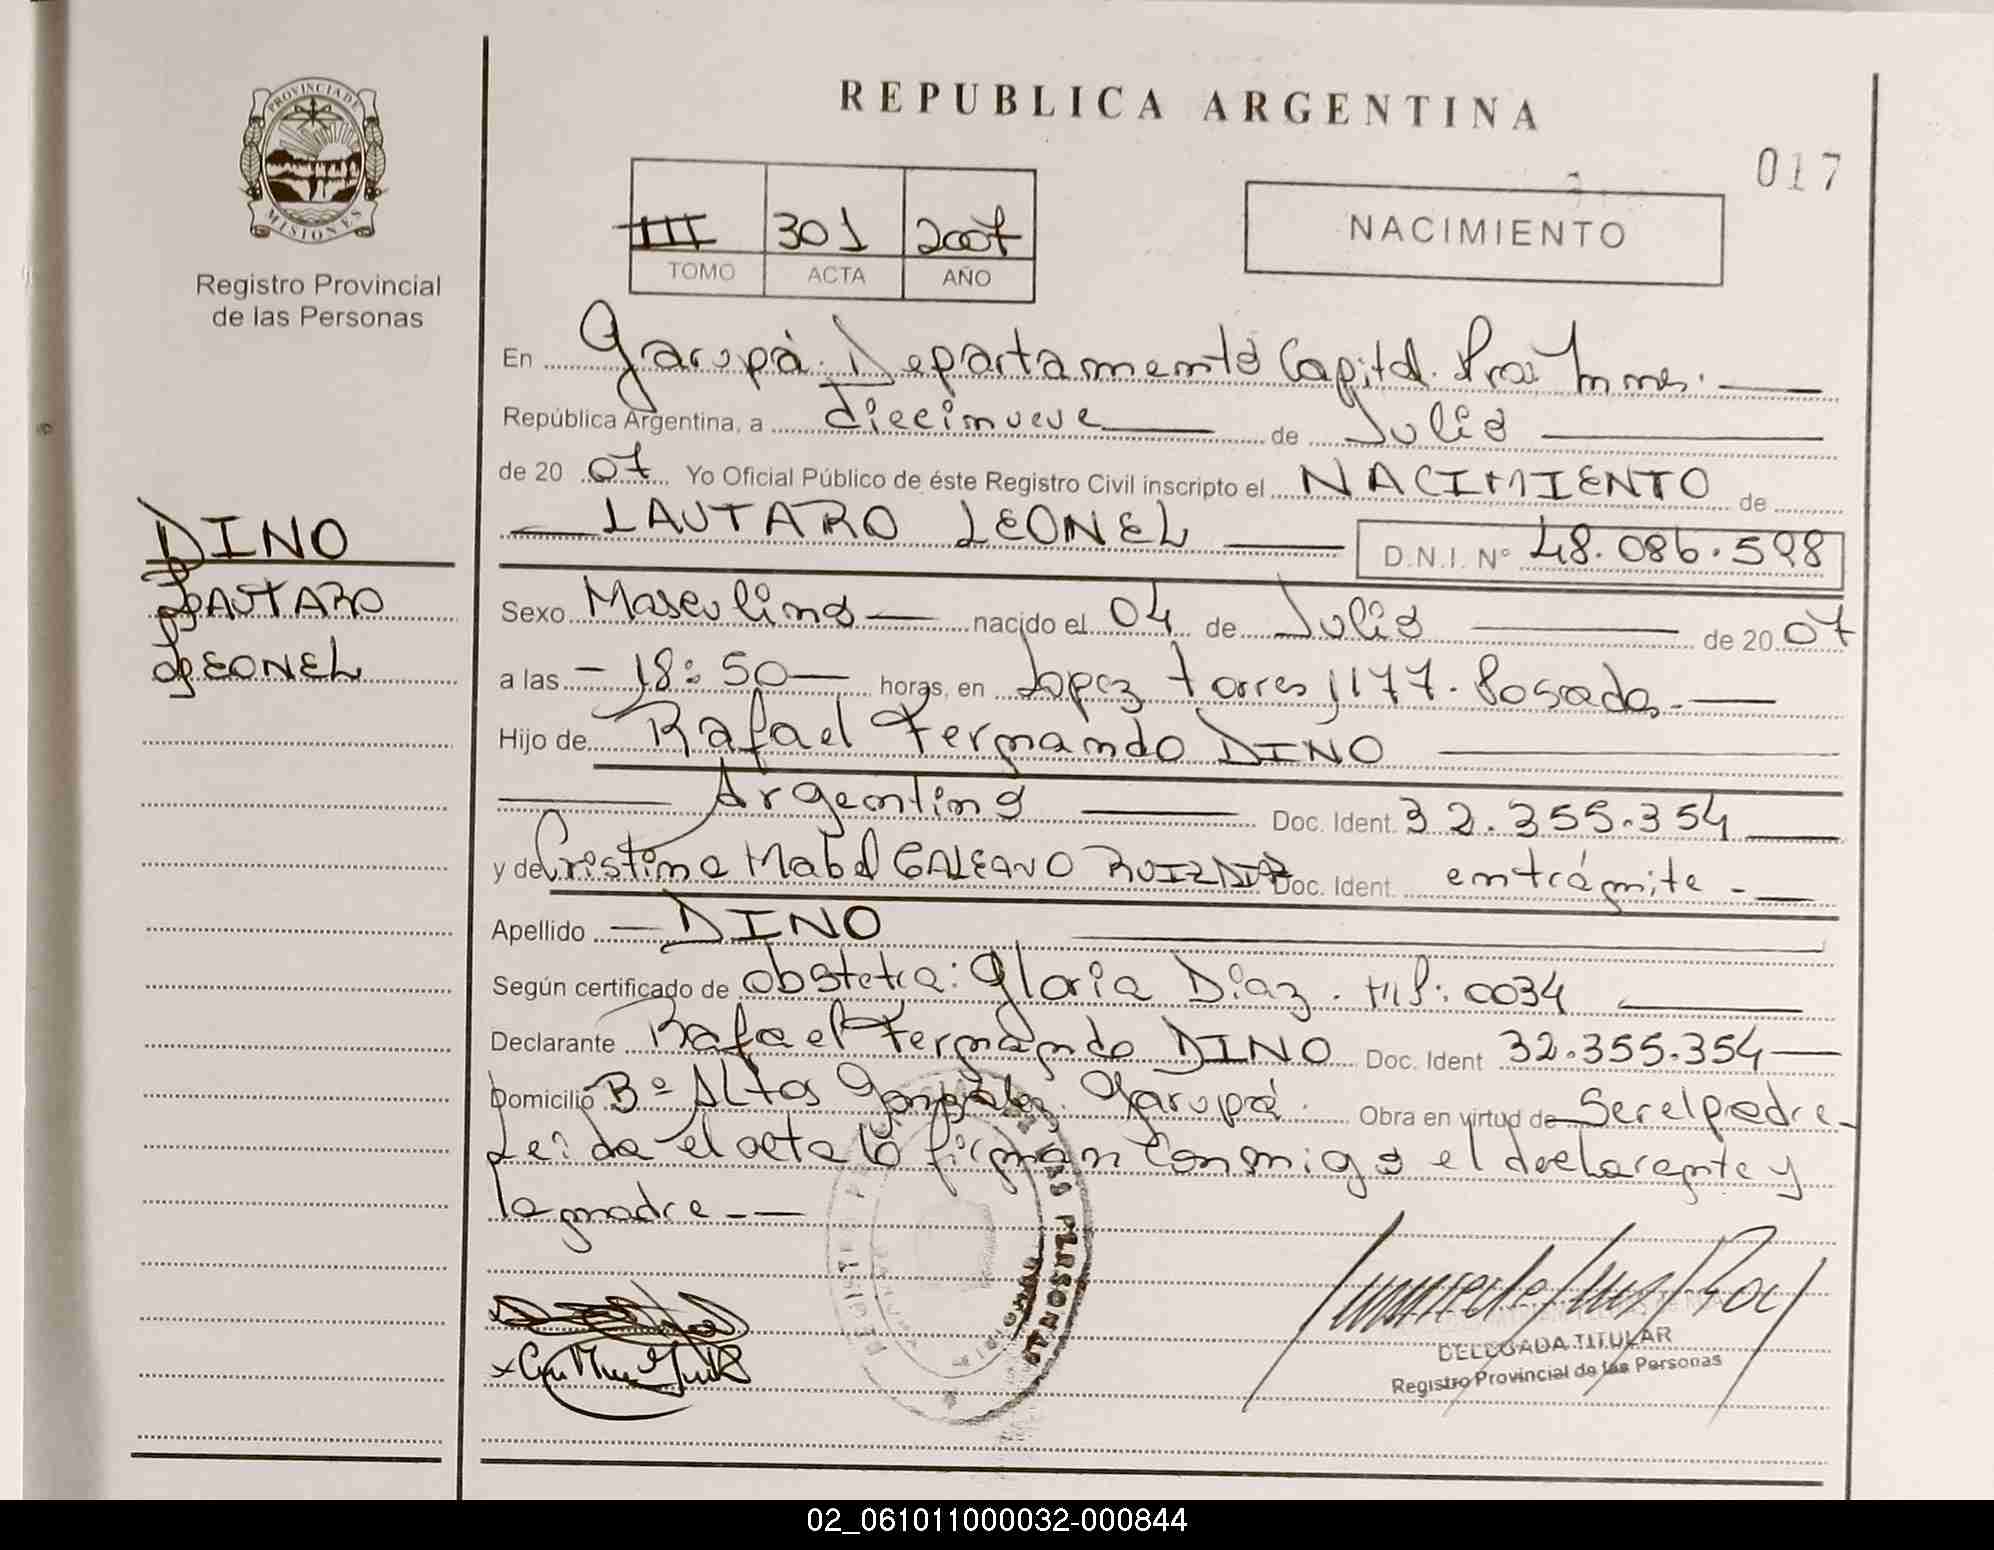 REPUBLICA ARGENTINA
017
PROVINCIA DE MISIONES
Registro Provincial
de las Personas
III 301 2007
TOMO ACTA AÑO
NACIMIENTO
En Garupá. Departamento Capital. Prov Mnes.
República Argentina, a diecinueve de Julio
de 20 07 Yo Oficial Público de éste Registro Civil inscripto el NACIMIENTO de
LAUTARO LEONEL D.N.I. Nº 48.086.598
DINO
LAUTARO
LEONEL
Sexo Masculino nacido el 04 de Julio de 20 07
a las 18:50 horas, en Lopez Torres 1177. Posadas.
Hijo de Rafael Fernando DINO
Argentino Doc. Ident. 32.355.354
y de Cristina Mabel GALEANO RUIZ DIAZ Doc. Ident. en trámite -
Apellido DINO
Según certificado de obstetra: Gloria Diaz. MP: 0034
Declarante Rafael Fernando DINO Doc. Ident 32.355.354
Domicilio Bº Altos Gonzalez. Garupá. Obra en virtud de Ser el padre
Leida el acta lo firman conmigo el declarante y
la madre --
DELEGADA TITULAR
Registro Provincial de las Personas
02_061011000032-000844